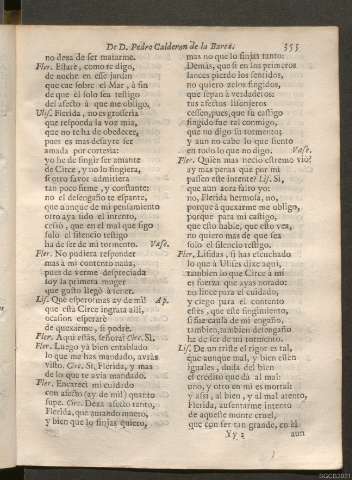 De D. Pedro Calderon de la Barca. 355
no dexa de ser matarme.
Fler. Estarè, como te digo,
de noche en esse jardin
que cae sobre el Mar, à fin
de que èl solo sea testigo
del afecto à que me obligo,
Ulis. Flerida, no es grosseria
que responda la voz mia,
que no te ha de obedecer,
pues es mas desayre ser
amada por cortesia:
yo he de fingir ser amante
de Circe, y no lo fingiera,
si otro favor admitiera
tan poco firme, y constante:
no el desengaño te espante,
que aunque de mi pensamiento
otro aya sido el intento,
creìo, que en el mal que sigo
solo el silencio testigo
ha de ser de mi tormento. Vase.
Fler. No pudiera responder
mas à mi contento nada,
pues de verme despreciada
soy la primera muger
que gusto llegò à tener.
Lis. Què espero mas ay de mi! Ap.
que esta Circe ingrata alli,
ocasion esperarè
de quexarme, si podrè.
Fler. Aqui estàs, señora? Circ. Sì.
Fler. Luego yà bien entablado
lo que me has mandado, avràs
visto. Circ. Sì, Flerida, y mas
de lo que te avia mandado.
Fler. Encareci mi cuidado
con afecto (ay de mi!) quanto
supe. Circ. Dexa afecto tanto,
Flerida, que amando muero,
y bien que lo finjas quiero,
mas no que lo finjas tanto:
Demàs, que si en los primeros
lances pierdo los sentidos,
no quiero zelos fingidos,
que sepan à verdaderos:
tus afectos lisonjeros
cessen, pues, que su castigo
fingidose fue conmigo,
que no digo su tormento;
y aun no cabe lo que siento
en todo lo que no digo. Vase.
Fler. Quien mas necio estremo viò!
ay mas penas que por mi
passen este intente? Lis. Sì,
que aun aora falto yo:
no, Flerida hermosa, no,
porque à quexarme me obligo,
porque para mi castigo,
que esto hable, que esto vea,
no quiero mas de que sea
solo el silencio testigo.
Fler. Lisidas, si has escuchado
lo que à Ulises dixe aqui,
tambien lo que Circe à mi
es fuerza que ayas notado:
no hice para el cuidado,
y ciego para el contento
estès, que este fingimiento,
si fue causa de mi engaño,
tambien, tambien del engaño
ha de ser de mi tormento.
Lis. De un triste el rigor es tal,
que aunque mal, y bien estèn
iguales, duda del bien
el credito que dà al mal:
uno, y otro en mi es mortal;
y assi, al bien, y al mal atento,
Flerida, ausentarme intento
de aqueste monte cruel,
que con ser tan grande, en èl
Yy 2 aun